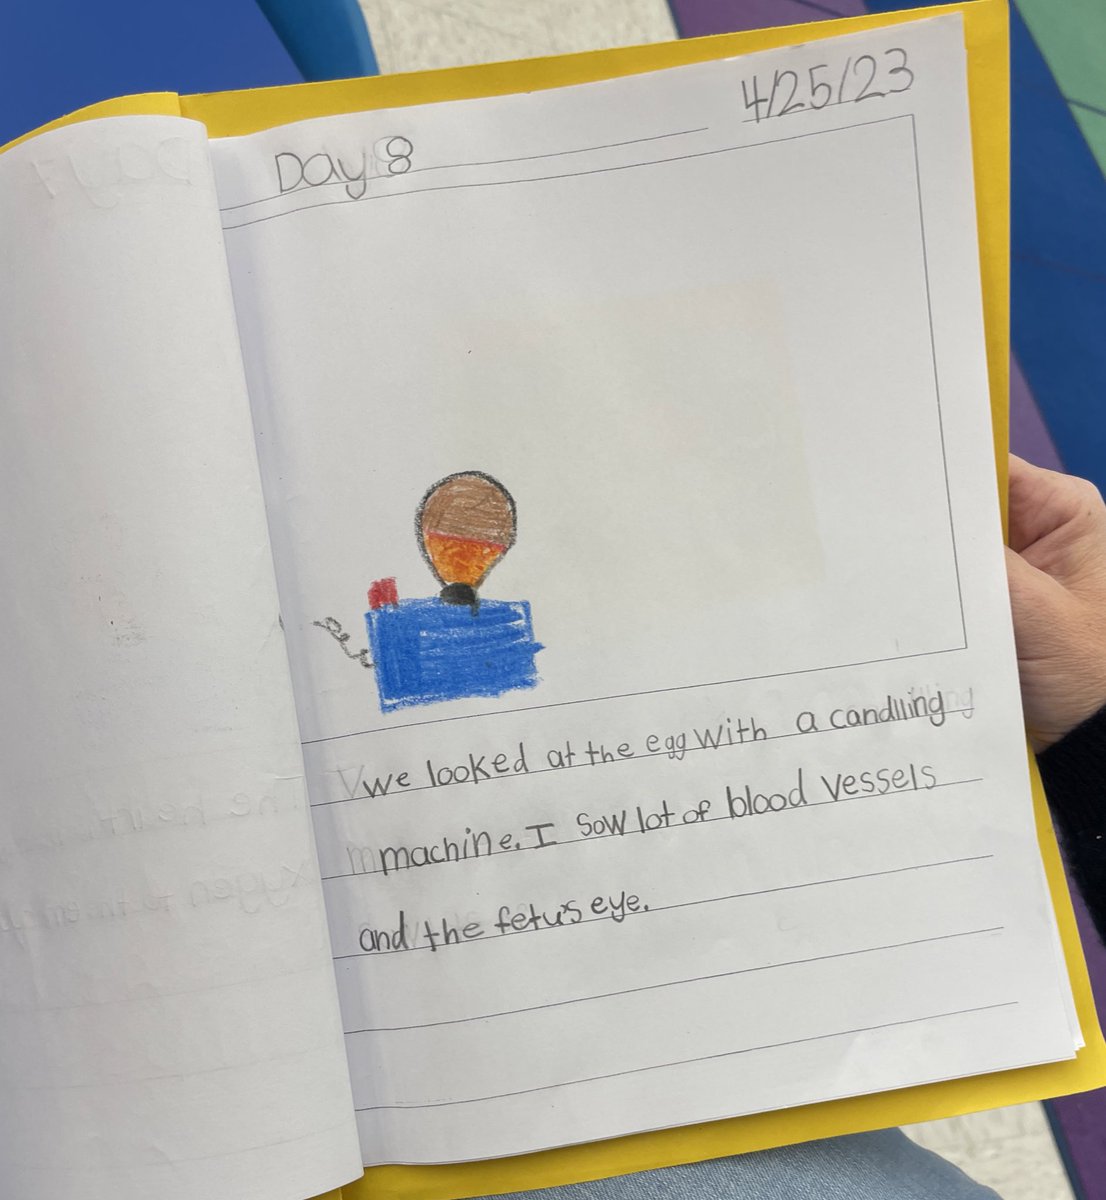 Day 8
4/25/23
we looked at the egg with a candling
machine. I sow lot of blood vessels
and the fetus eye.